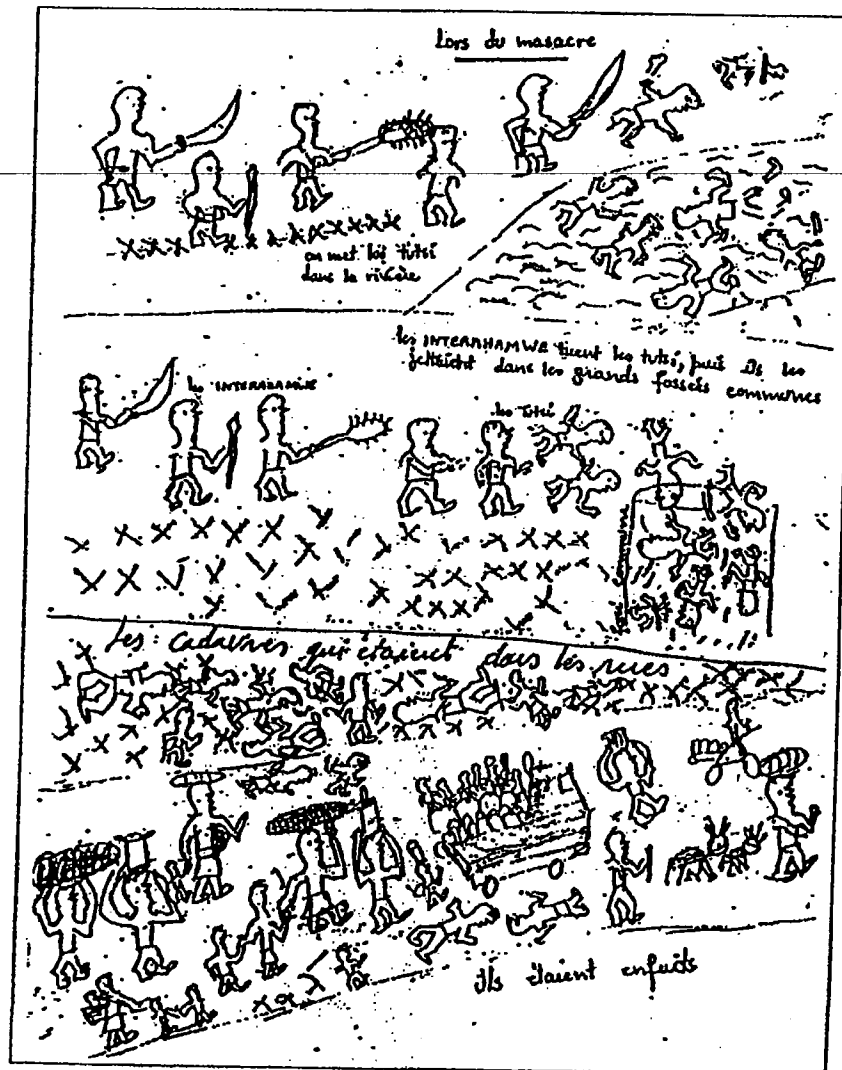 Lors du masacre
on met les tutsi
dans la rivière
les INTERAHAMWE tuent les tutsi, puis ils les
jettaient dans les grands fossées communes
les INTERAHAMWE
les Tutsi
Les cadavres qui étaient dans les rues
ils étaient enfuits